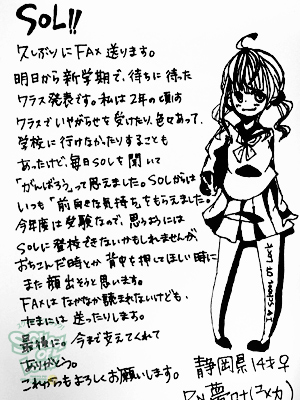 SOL!!
久しぶりにFAX送ります。
明日から新学期で、待ちに待った
クラス発表です。私は2年の頃
クラスでいやがらせを受けたり、色々あって、
学校に行けなかったりすることも
あったけど、毎日SOLを聞いて
「がんばろう」って思えました。SOLからは
いつも「前向きな気持ち」をもらえました。
今年度は受験なので、思うようには
SOLに登校できないかもしれませんが
おちこんだ時とか背中を押してほしい時に
また顔出そうと思います。
FAXはなかなか読まれないけども、
たまには送ったりします。
最後に。今まで支えてくれて
ありがとう。
これからもよろしくお願いします。
静岡県14才♀
RN夢叶(ユメカ)